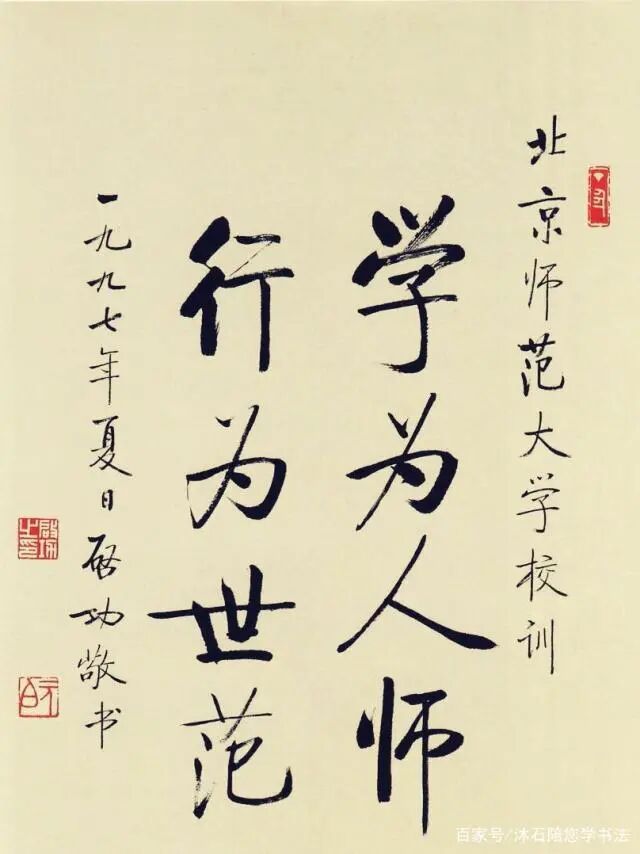 北京师范大学校训
学为人师
行为世范
一九九七年夏日启功敬书
启功之印
元白
百家号/沐石陪您学书法